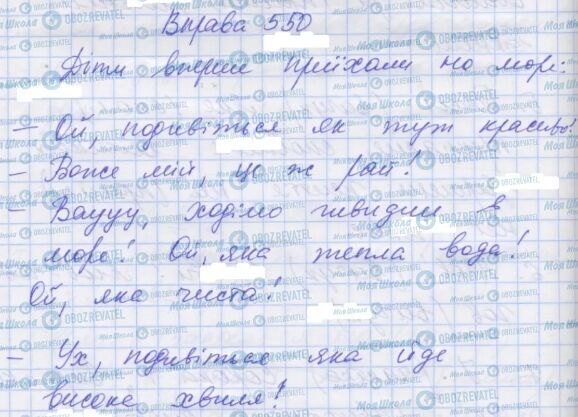 Вправа 550
Діти вперше приїхали на море:
– Ой, подивіться як тут красиво!
– Боже мій, це ж рай!
– Вауууу, ходімо швидше в
море! Ой, яка тепла вода!
Ой, яка чиста!
– Ух, подивіться яка йде
висока хвиля!